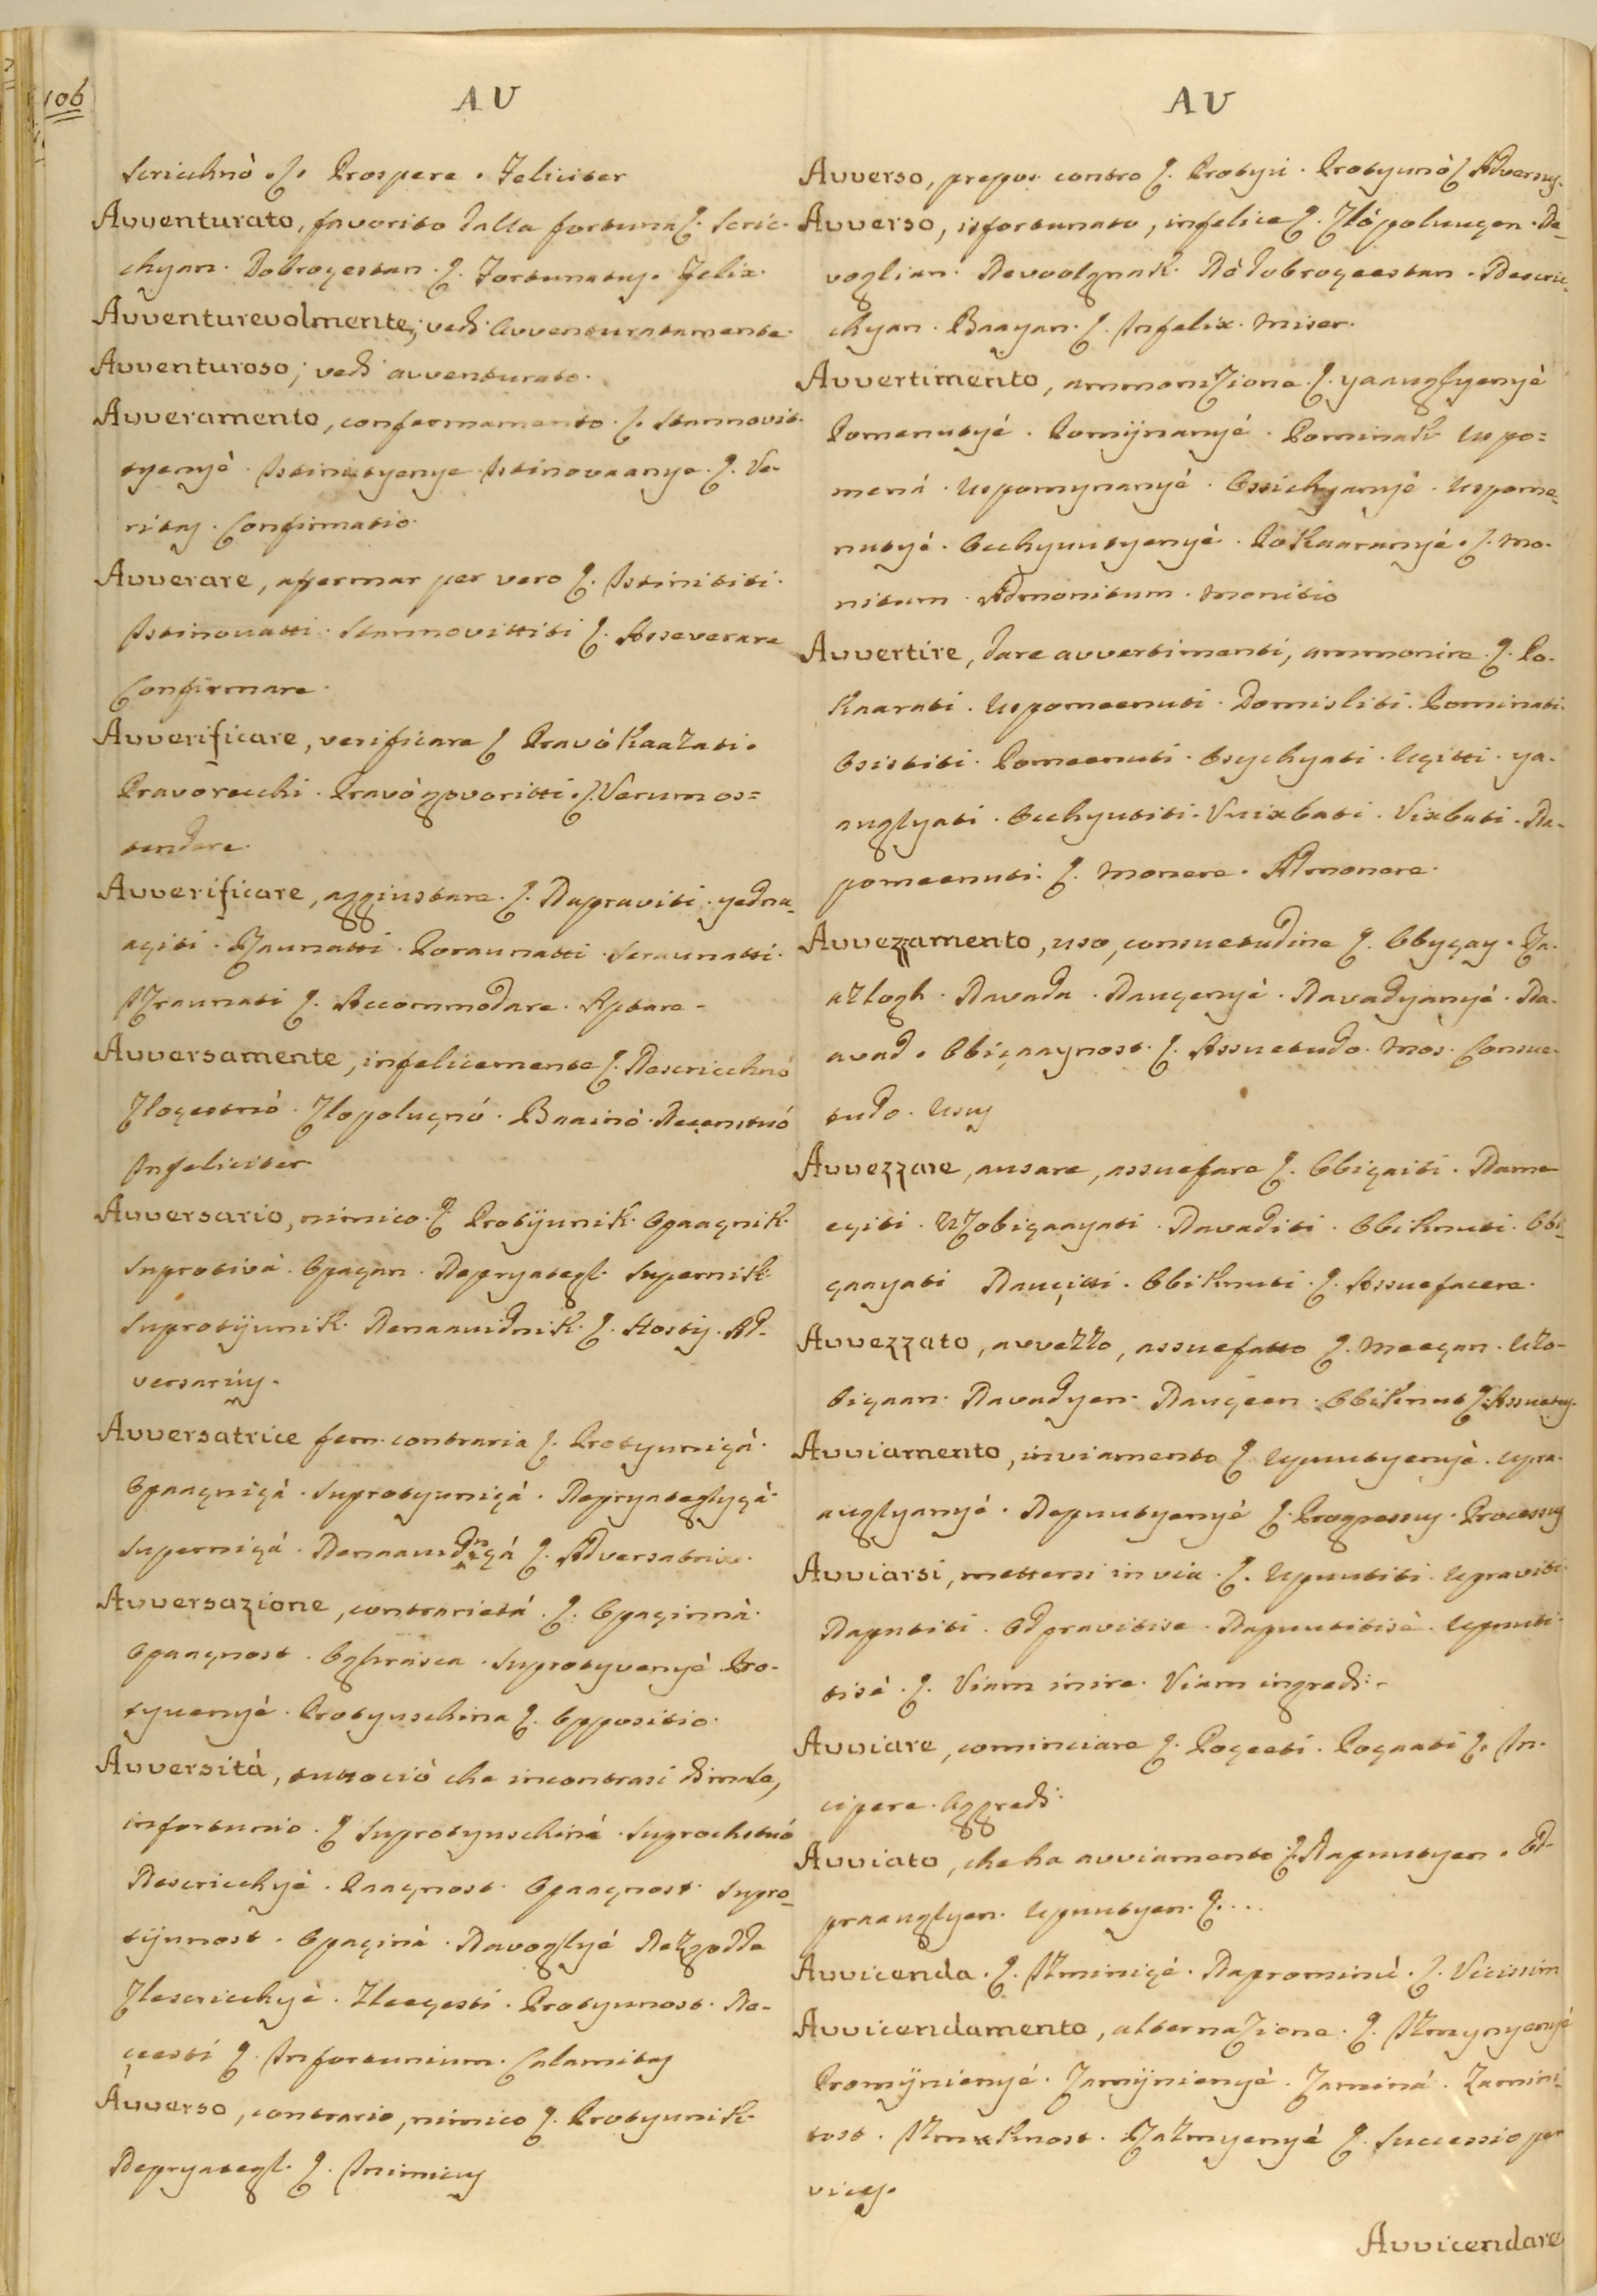 106
AV
Scricchnò .ſ. Prospere . Feliciter
Avventurato, favorito dalla fortuna ſ. Scric-
chyan . Dobroçestan . ſ. Fortunatus . Felix.
Avventurevolmente; vedi Avventuratamente.
Avventuroso; vedi avventurato.
Avveramento, confermamento . ſ. Stannovit-
tyenyè . Istinityenye . Istinovaanye . ſ. Ve-
ritas . Confirmatio.
Avverare, afermar per vero ſ. Istinititi .
Istinovatti . Stannovittiti ſ. Asseverare
Confirmare.
Avverificare, verificare ſ. Pravò kaaZati .
Pravorecchi . Pravò govoritti . ſ. Verum os=
tendere.
Avverificare, aggiustare . ſ. Napraviti . yedna-
açiti . Zaunatti . Poraunatti . Scraunatti .
IZraunati ſ. Accommodare . Aptare.
Avversamente, infelicemente ſ. Nescricchnò
Zloçestnò . Zlopoluçnò . Baainò . Neçenstnò
Infeliciter
Avversario, nimico . ſ. Protijunik . Opaaçnik .
Suprotivà . Opaçan . Nepryategl . Supernik .
Suprotijunik . Nenaavidnik . ſ. Hostis . Ad-
versarius.
Avversatrice fem. contraria ſ. Protyuniçà .
Opaaçniçà . Suprotyuniçà . Nepryateglyçà .
Superniçà . Nenaavidniçà ſ. Adversatrix.
Avversazione, contrarietà . ſ. Opaçinnà .
Opaaçnost . Suprotyvenyè . Pro-
tyvenyè . Protyuschina ſ. Oppositio.
Avversità, tuttociò che incontrasi di male,
infortunio . ſ. Suprotyuschinà . Suprochstnò
Nescricchyè . Paaçnost . Opaaçnost . Supro-
tijunost . Opaçinà . Navoglyè NeZgodda
Zlescricchyè . Zleeçesti . Protyunost . Ne-
çesti ſ. Infortunium . Calamitas
Avverso, contrario, nimico ſ. Protyunik .
Nepryategl . ſ. Inimicus
AV
Avverso, prepos. contro ſ. Protyvi . Protyunò ſ. Adversus.
Avverso, isfortunato, infelice ſ. Zlòpoluuçen . Ne-
voglian . Nevoolgnak . Nèdobroçeestan . Nescric-
chyan . Baayan . ſ. Infelix . Miser.
Avvertimento, ammoniZione . ſ. yaauglyenyè
Pomenutyè . Pomijnanyè . Pominak . Uspo=
menà . Uspomynanyè . Ossichyanyè . Uspome-
nutyè . Occhyuutyenyè . Pokaaranyè . ſ. Mo-
nitum . Admonitum . Monitio
Avvertire, dare avvertimenti, ammonire . ſ. Po-
kaarati . Uspomeenuti . Domisliti . Pominati .
Osistiti . Pomeenuti . Osychyati . Uçitti . ya-
auglyati . Occhyutiti . Vuixbati . Vixbati . Na-
pomeenuti . ſ. Monere . Admonere.
Avvezzamento, uso, consuetudine ſ. Obyçay . Za-
aZlogh . Navada . Nauçenyè . Navadyanyè . Na-
avad . Obiçaaynost . ſ. Assuetudo . Mos . Consue-
tudo . Usus
Avvezzare, ausare, assuefare ſ. Obiçaiti . Name-
eçiti . UZobiçaayati . Navaditi . Obiknuti . Obi-
çaayati Nauçitti . Obiknuti . ſ. Assuefacere.
Avvezzato, avveZZo, assuefatto ſ. Meeçan . UZo-
biçaan . Navadyen . Nauçeen . Obiknut ſ. Assuetus.
Avviamento, inviamento ſ. Upuutyenyè . Upra-
auglyanyè . Napuutyenyè ſ. Progressus . Processus
Avviarsi, mettersi in via . ſ. Upuutiti Upraviti .
Naputiti . Odpravitise . Napuutitisè . Upuuti-
tisè . ſ. Viam inire . Viam ingredi.
Avviare, cominciare ſ. Poçeeti . Poçaati ſ. In-
cipere . Aggredi.
Avviato, che ha avviamento ſ. Napuutyen . Od-
praauglyen . Upuutyen . ſ. ...
Avvicenda . ſ. IZminiçè . Naprominè . ſ. Vicissim
Avvicendamento, alternaZione . ſ. IZmynyenyè
Promijnienyè . Zamijnienyè . Zamină . Zamini-
tost . IZmaknost . ZaZmyenyè ſ. Successio per
vices.
Avvicendare